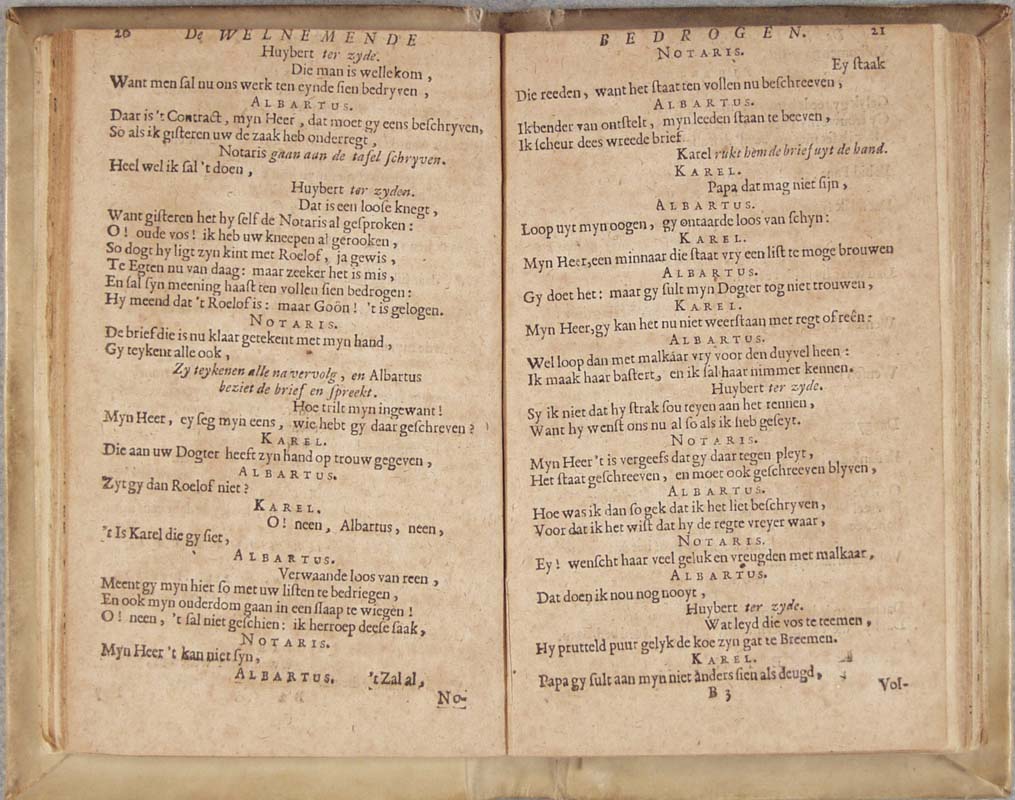 20 De WELNEMENDE
Huybert ter zyde.
Die man is wellekom,
Want men sal nu ons werk ten eynde sien bedryven,
ALBARTUS.
Daar is 't Contract, myn Heer, dat moet gy eens beschryven,
So als ik gisteren uw de zaak heb onderregt,
Notaris gaan aan de tafel schryven.
Heel wel ik sal 't doen,
Huybert ter zyden.
Dat is een loose knegt,
Want gisteren het hy self de Notaris al gesproken:
O! oude vos! ik heb uw kneepen al gerooken,
So dogt hy ligt zyn kint met Roelof, ja gewis,
Te Egten nu van daag: maar zeeker het is mis,
En sal syn meening haast ten vollen sien bedrogen:
Hy meend dat 't Roelof is: maar Goôn! 't is gelogen.
NOTARIS.
De brief die is nu klaar getekent met myn hand,
Gy teykent alle ook,
Zy teykenen alle na vervolg, en Albartus
beziet de brief en spreekt.
Hoe trilt myn ingewant!
Myn Heer, ey seg myn eens, wie hebt gy daar geschreven?
KAREL.
Die aan uw Dogter heeft zyn hand op trouw gegeven,
ALBARTUS.
Zyt gy dan Roelof niet?
KAREL.
O! neen, Albartus, neen,
't Is Karel die gy siet,
ALBARTUS.
Verwaande loos van reen,
Meent gy myn hier so met uw listen te bedriegen,
En ook myn ouderdom gaan in een slaap te wiegen!
O! neen, 't sal niet geschien: ik herroep deese saak,
NOTARIS.
Myn Heer 't kan niet syn,
ALBARTUS. 't Zal al,
No-
BEDROGEN. 21
NOTARIS.
Ey staak
Die reeden, want het staat ten vollen nu beschreeven,
ALBARTUS.
Ik bender van ontstelt, myn leeden staan te beeven,
Ik scheur dees wreede brief
Karel rukt hem de brief uyt de hand.
KAREL.
Papa dat mag niet sijn,
ALBARTUS.
Loop uyt myn oogen, gy ontaarde loos van schyn:
KAREL.
Myn Heer, een minnaar die staat vry een list te moge brouwen
ALBARTUS.
Gy doet het: maar gy sult myn Dogter tog niet trouwen,
KAREL.
Myn Heer, gy kan het nu niet weerstaan met regt of reên:
ALBARTUS.
Wel loop dan met malkáar vry voor den duyvel heen:
Ik maak haar bastert, en ik sal haar nimmer kennen.
Huybert ter zyde.
Sy ik niet dat hy strak sou teyen aan het rennen,
Want hy wenst ons nu al so als ik heb geseyt.
NOTARIS.
Myn Heer 't is vergeefs dat gy daar tegen pleyt,
Het staat geschreeven, en moet ook geschreeven blyven,
ALBARTUS.
Hoe was ik dan so gek dat ik het liet beschryven,
Voor dat ik het wist dat hy de regte vreyer waar,
NOTARIS.
Ey! wenscht haar veel geluk en vreugden met malkaar,
ALBARTUS.
Dat doen ik nou nog nooyt,
Huybert ter zyde.
Wat leyd die vos te teemen,
Hy prutteld puur gelyk de koe zyn gat te Breemen.
KAREL.
Papa gy sult aan myn niet anders sien als deugd,
B 3 Vol-